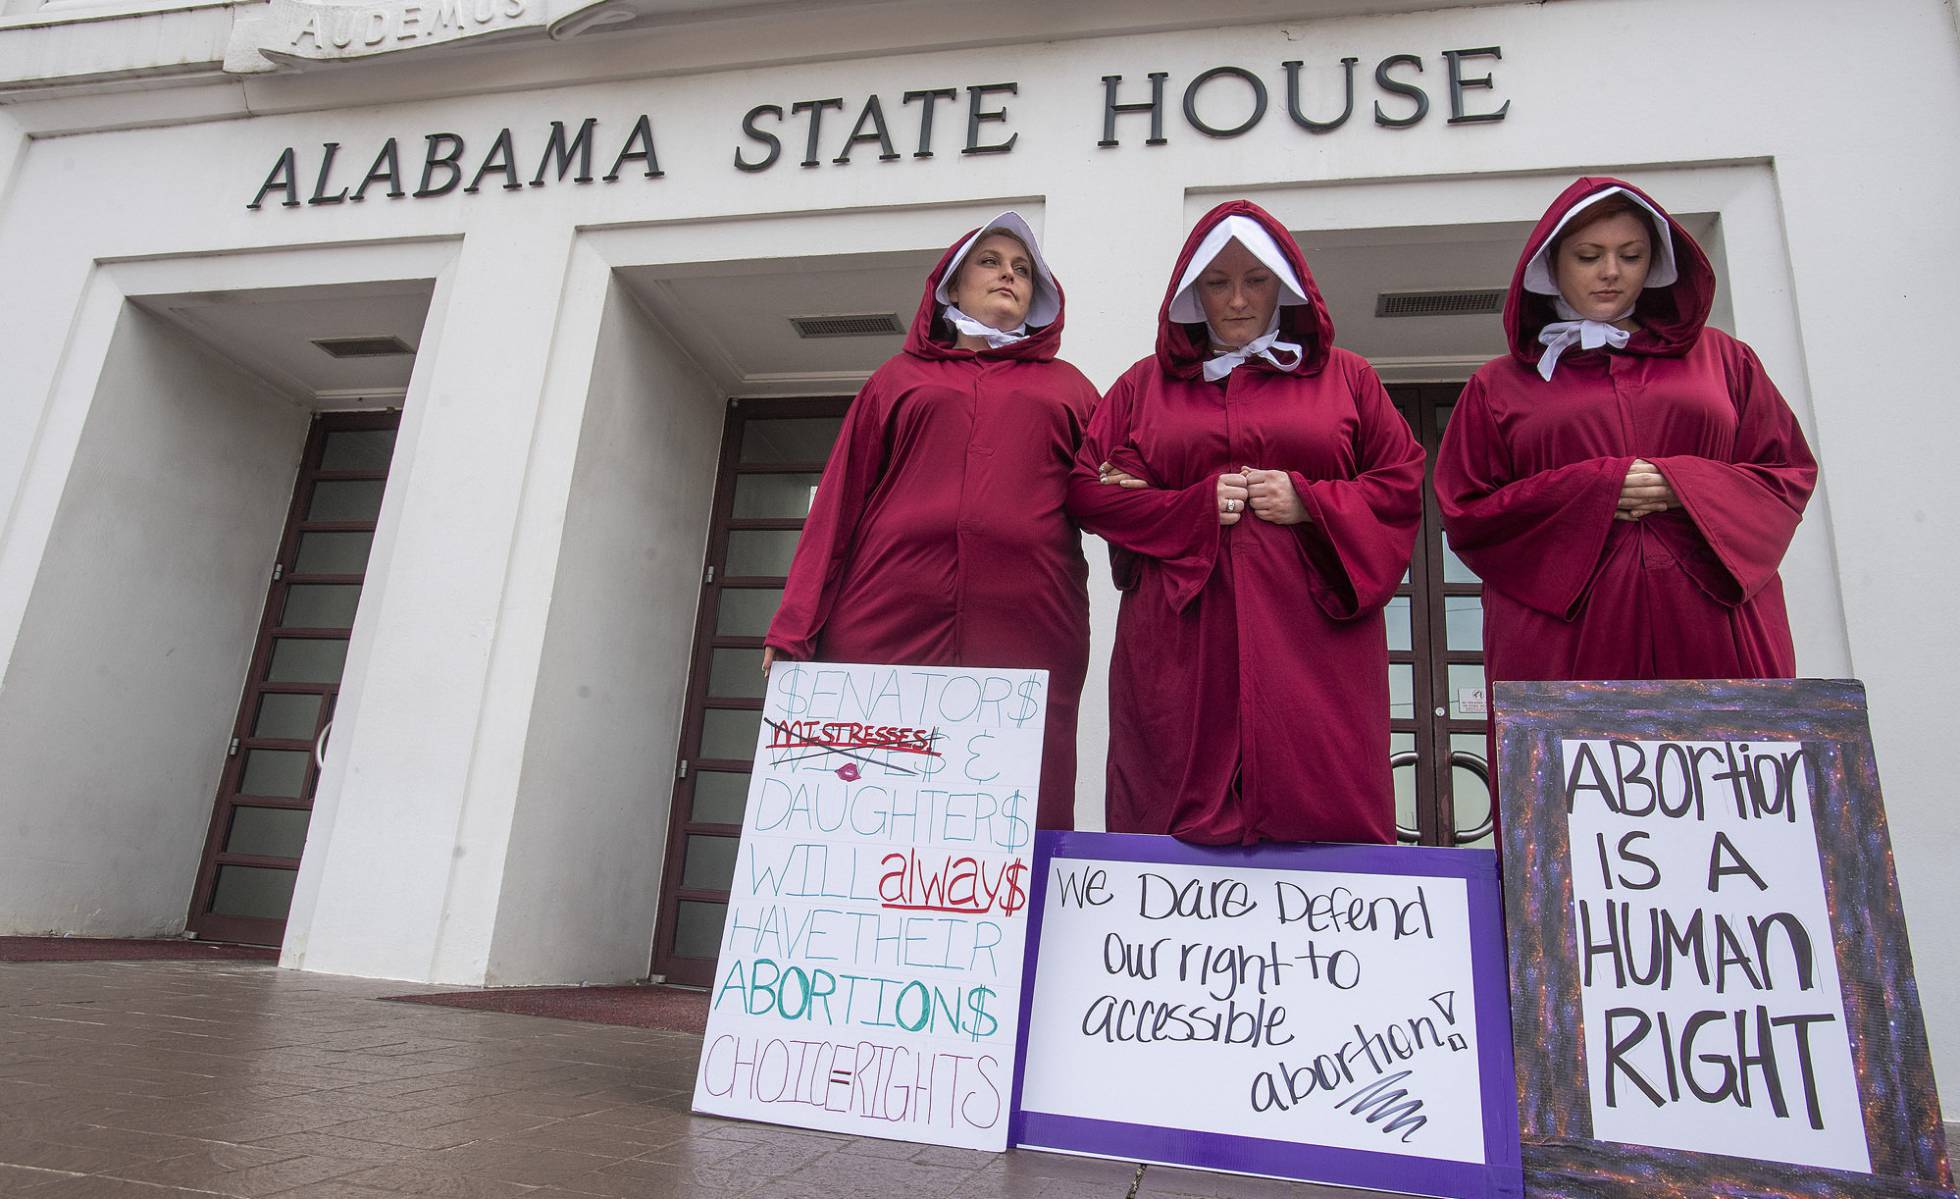 AUDEMUS
ALABAMA STATE HOUSE
$ENATOR$
MISTRESSES!
WIVE$ &
DAUGHTER$
WILL alway$
HAVE THEIR
ABORTION$
CHOICE=RIGHTS
We Dare Defend
our right to
accessible
abortion!
ABORtion
IS A
HUMAn
RIGHT